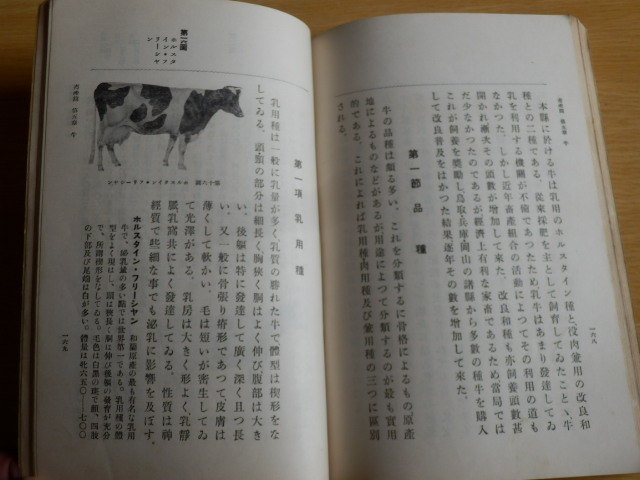 畜産篇 第五章 牛
一六八
本縣に於ける牛は乳用のホルスタイン種と役肉兼用の改良和
種との二種である。從來採肥を主として飼育してゐたことゝ牛
乳を利用する機關が不備であつたため乳牛はあまり發達してゐ
なかつた。しかし近年畜産組合の活動によつてその利用の道も
開かれ漸次その頭數が增加して來た。改良和種も亦飼養頭數甚
だ少なかつたのであるが經濟上有利な家畜であるため當局では
これが飼養を奬勵し鳥取兵庫岡山の諸縣から多數の種牛を購入
して改良普及をはかつた結果逐年その數を增加して來た。
第一節 品種
牛の品種は頗る多い。これを分類するに骨格によるもの原產
地によるものなどがあるが用途によつて分類するのが最も實用
的である。これによれば乳用種肉用種及び兼用種の三つに區別
される。
第一項 乳用種
乳用種は一般に乳量が多く乳質の勝れた牛で體型は楔形をな
してゐる。頭頸の部分は細長く胸狹く胴はよく伸び腹部は大き
い。後軀は特に發達して廣く深く且つ長
い。又一般に骨張り瘠形であつて皮膚は
薄くして軟かい。毛は短いが密生してゐ
て光澤がある。乳房は大きく形よく乳靜
脈乳窩共によく發達してゐる。性質は神
經質で些細な事でも泌乳に影響を及ぼす。
ホルスタイン・フリーシヤン 和蘭原產の最も有名な乳用
牛で、泌乳量の多い點では世界第一である。乳用種の體
型をよく現はし、頭は狹長く胴は伸び後軀の發育が充分
で、所謂楔形を呈してゐる。毛色は白黑の斑で額、四肢
の下部及び尾端は白が多い。體量は牝六五〇ー七〇〇
第六圖
ホルスタ
イン・フ
リーシヤ
ン
第十六圖 ホルスタイン・フリーシヤン
畜產篇 第五章 牛
一六九